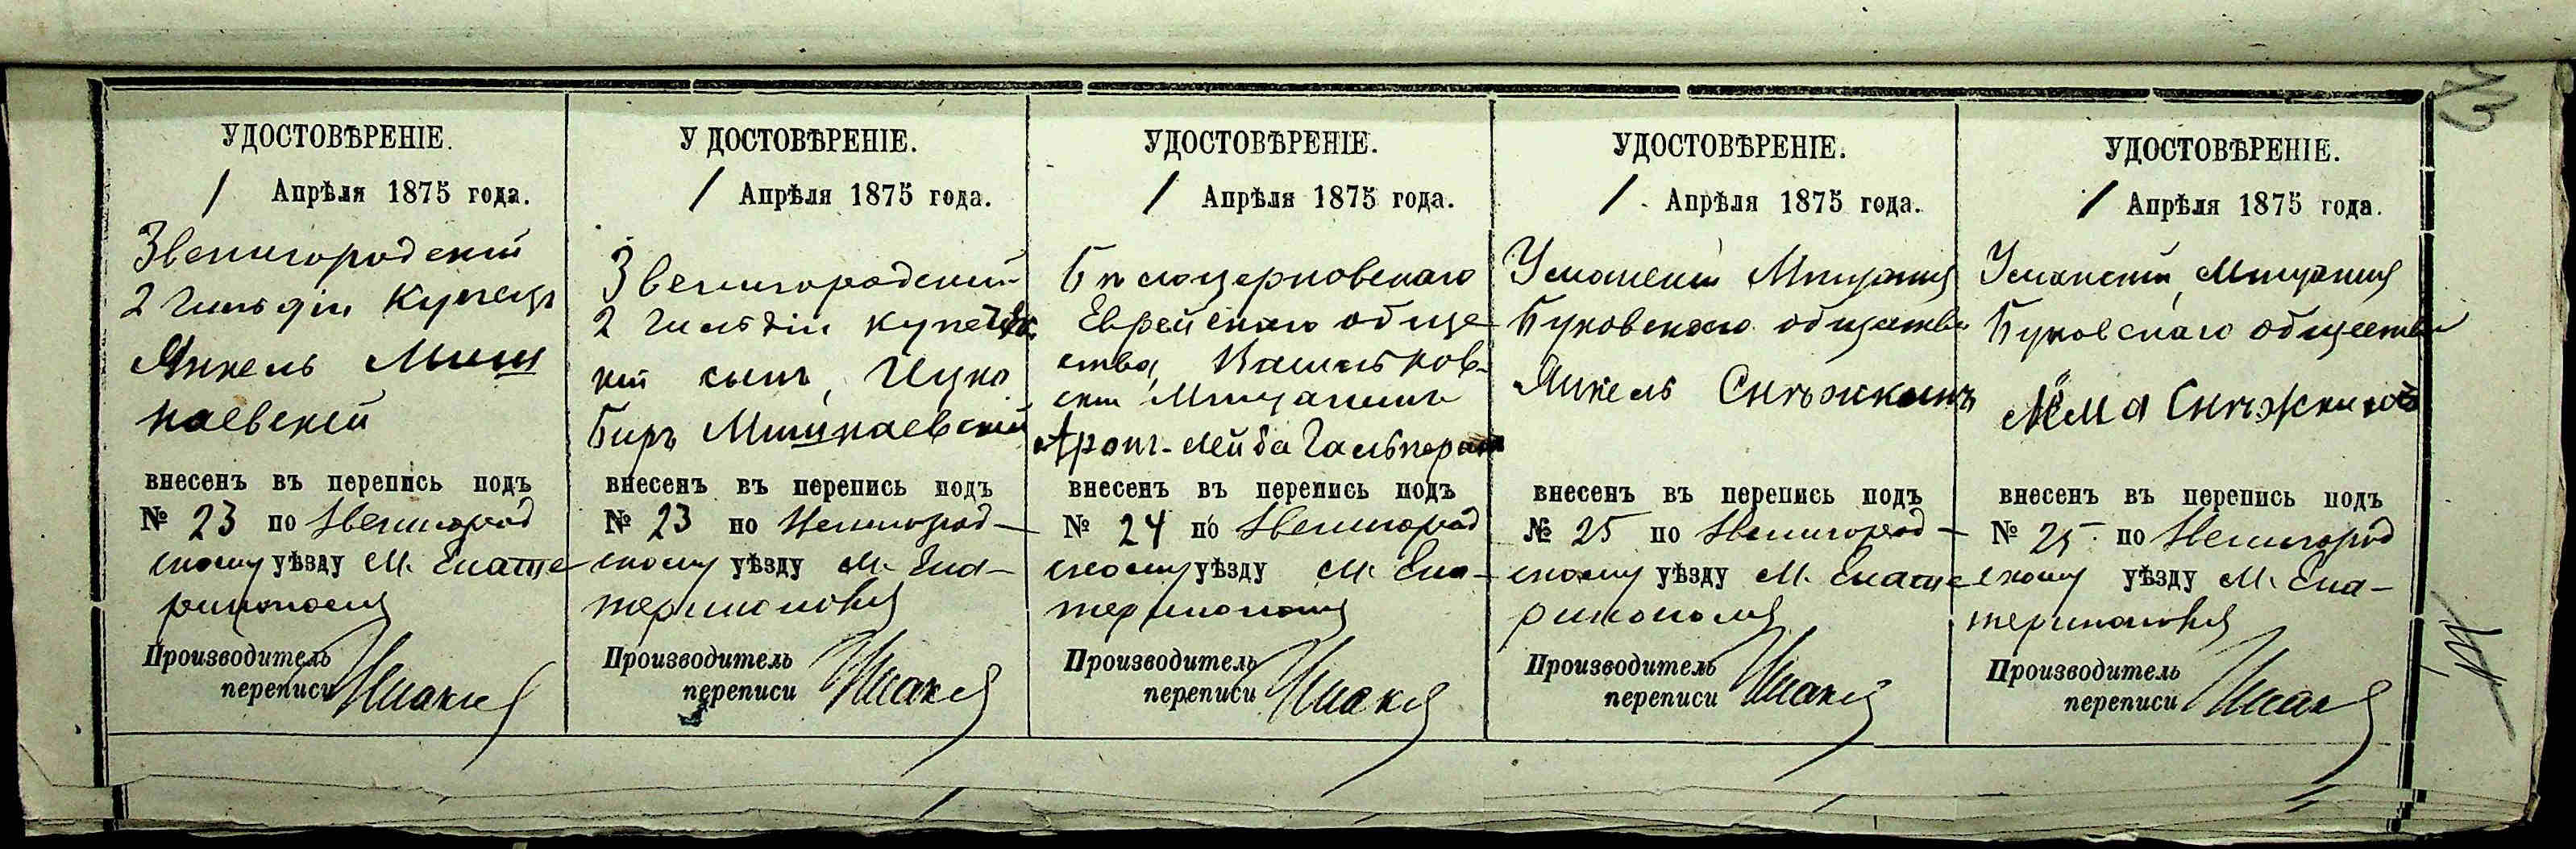 УДОСТОВѢРЕНІЕ.
1 Апрѣля 1875 года.
Звенигородскій
2 Гильдіи Купецъ
Янкель Миш
каевскій
внесенъ въ перепись подъ
№ 23 по Звенигород
скому уѣзду М. Екате
ринополя
Производитель
переписи
УДОСТОВѢРЕНІЕ.
1 Апрѣля 1875 года.
Звенигородскій
2 Гильдіи купечес
кій сынъ, Ицко
Биръ Мишкаевскій
внесенъ въ перепись подъ
№ 23 по Звенигород-
скому уѣзду М. Ека-
теринополя
Производитель
переписи
УДОСТОВѢРЕНІЕ.
1 Апрѣля 1875 года.
Бѣлоцерковскаго
Еврейскаго обще
ства, Васильков-
скій Мѣщанинъ
Аронъ-Лейба Гальперинъ
внесенъ въ перепись подъ
№ 24 по Звенигород
скому уѣзду М. Ека-
теринополя
Производитель
переписи
УДОСТОВѢРЕНІЕ.
1 Апрѣля 1875 года.
Уманскій Мѣщанинъ
Буковскаго общества
Янкель Снѣжкинъ
внесенъ въ перепись подъ
№ 25 по Звенигород-
скому уѣзду М. Екате
ринополя
Производитель
переписи
УДОСТОВѢРЕНІЕ.
1 Апрѣля 1875 года.
Уманскій, Мѣщанинъ
Буковскаго общества
Снѣжкинъ
внесенъ въ перепись подъ
№ 25 по Звенигород
скому уѣзду М. Ека-
теринополя
Производитель
переписи